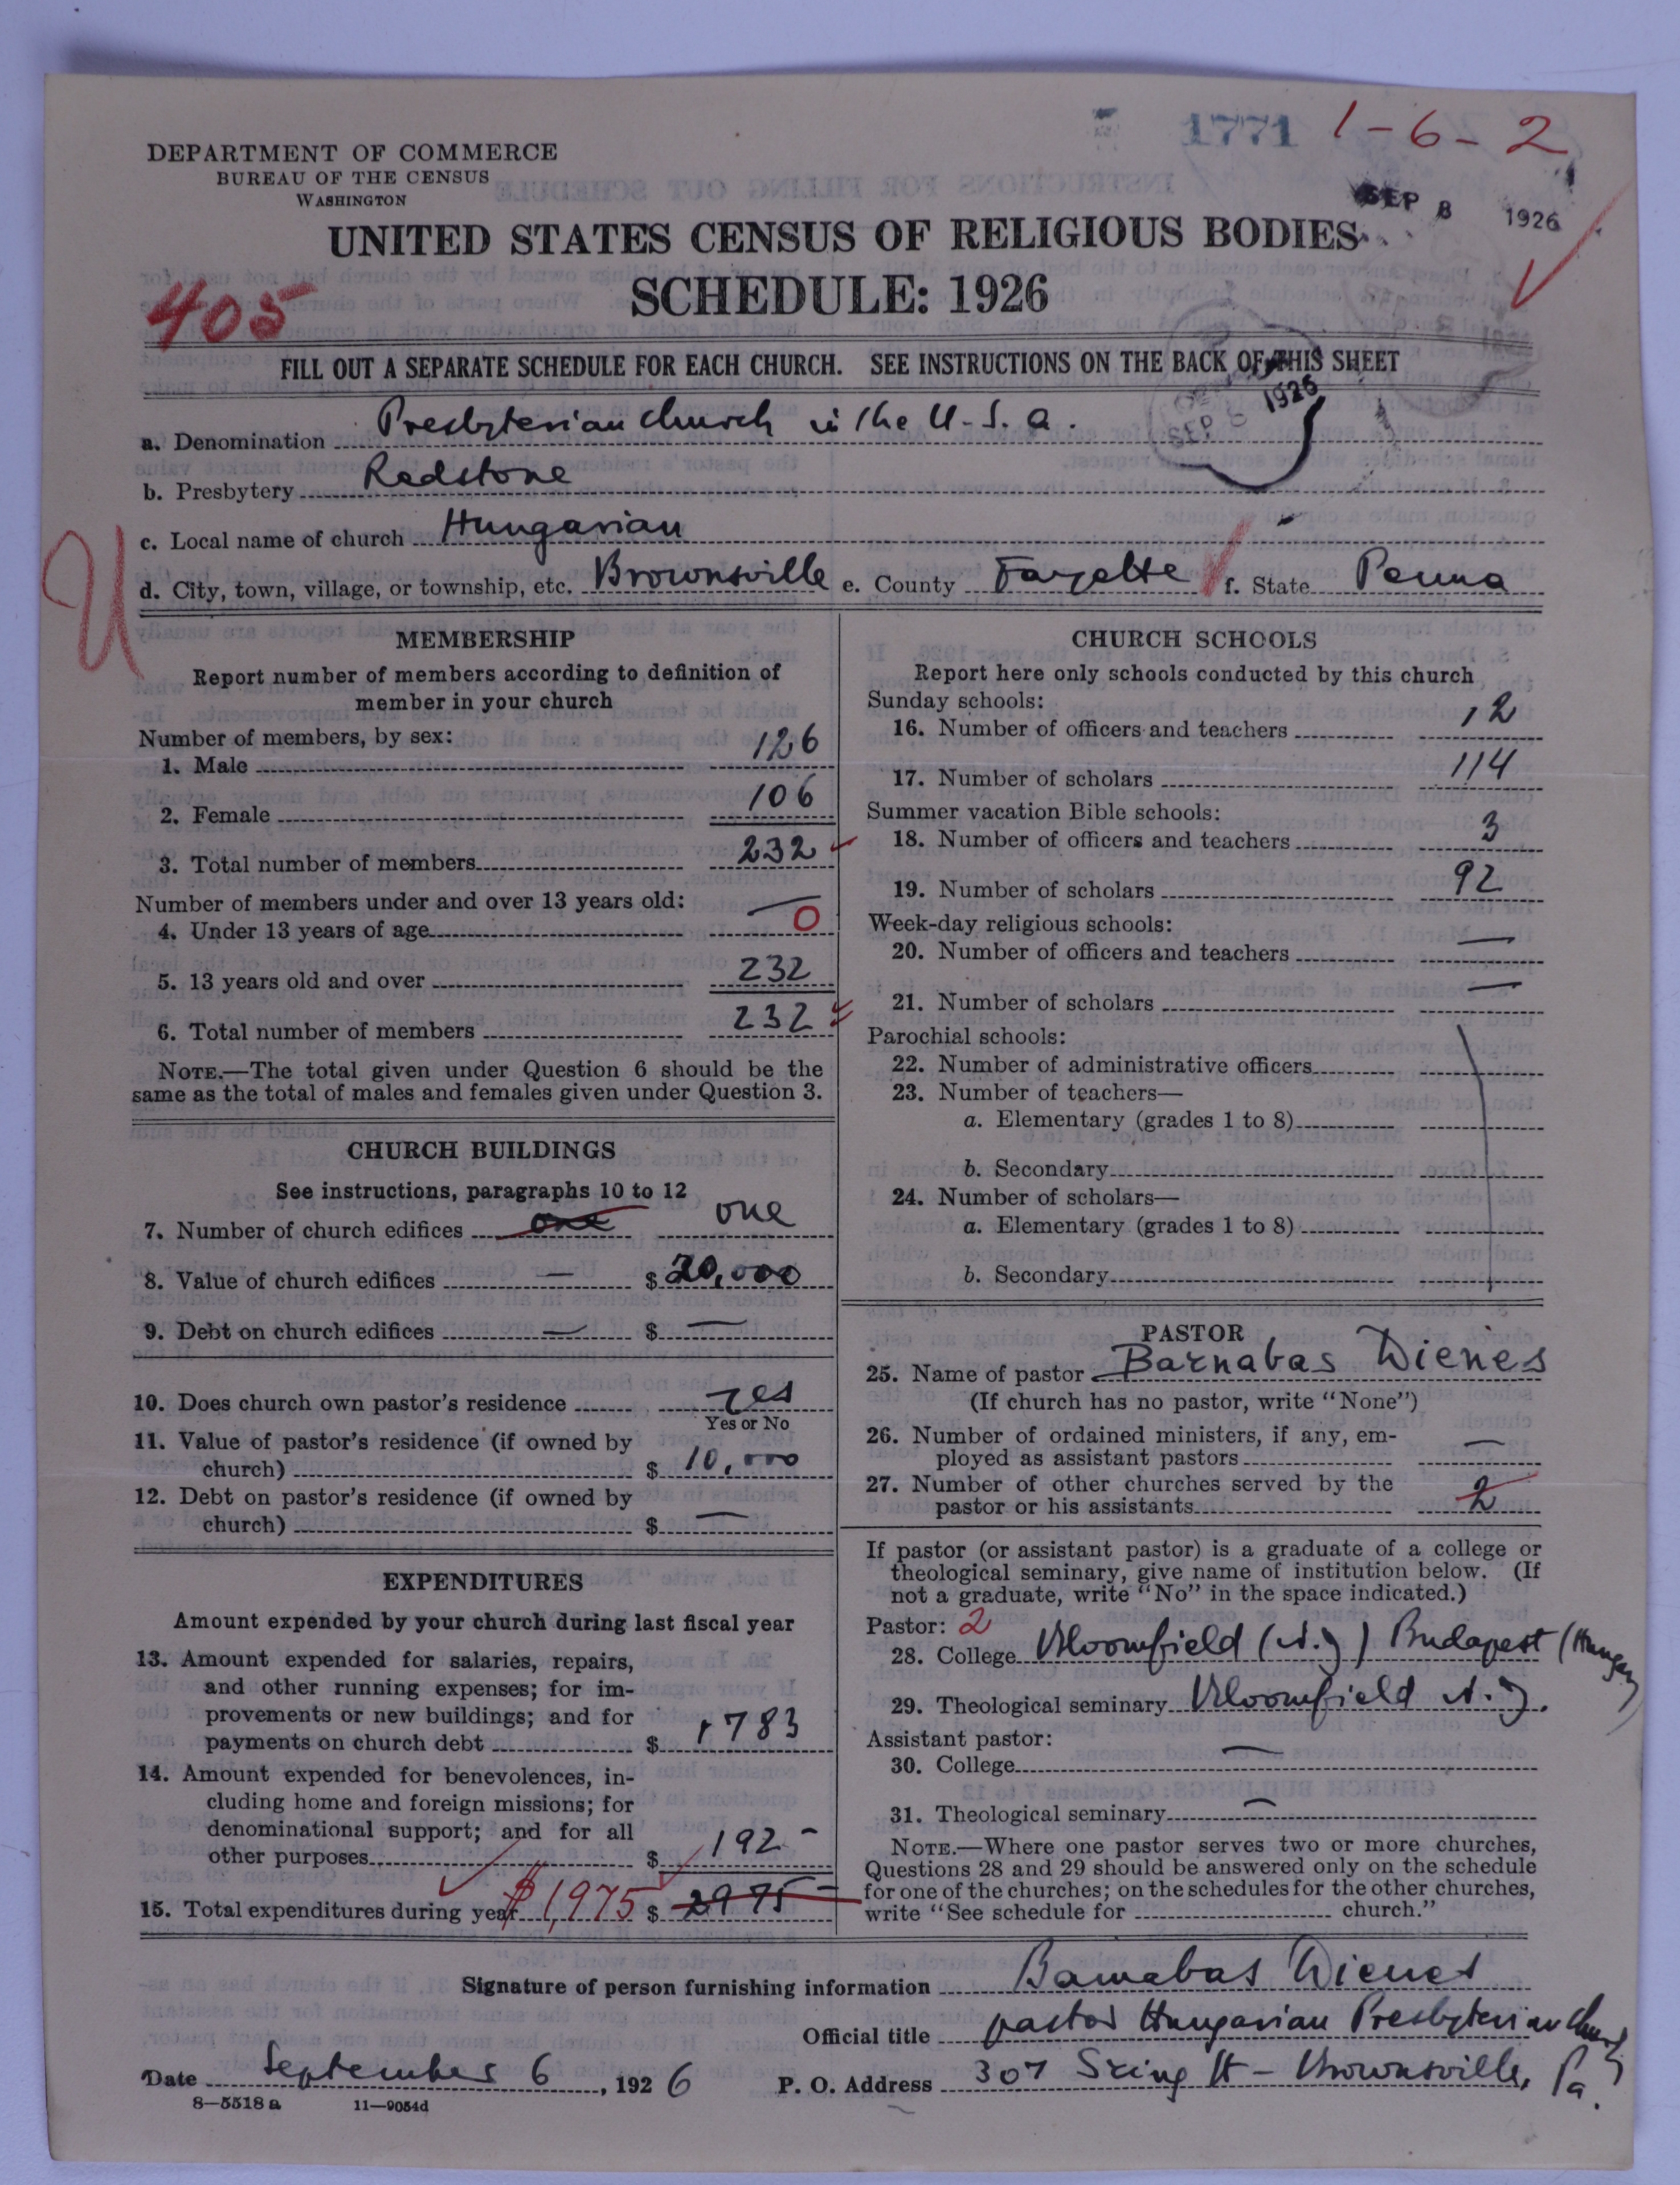 1771 1-6-2
DEPARTMENT OF COMMERCE
BUREAU OF THE CENSUS
WASHINGTON
SEP 8 1926
UNITED STATES CENSUS OF RELIGIOUS BODIES
SCHEDULE: 1926
405
FILL OUT A SEPARATE SCHEDULE FOR EACH CHURCH. SEE INSTRUCTIONS ON THE BACK OF THIS SHEET
SEP 1926
a. Denomination Presbyterian church in the U.S.a.
b. Presbytery Redstone
U
c. Local name of church Hungarian
d. City, town, village, or township, etc. Brownsville e. County Fayette f. State Penna
MEMBERSHIP
Report number of members according to definition of
member in your church
Number of members, by sex:
1. Male 126
2. Female 106
3. Total number of members 232
Number of members under and over 13 years old:
4. Under 13 years of age — 0
5. 13 years old and over 232
6. Total number of members 232
NOTE.—The total given under Question 6 should be the
same as the total of males and females given under Question 3.
CHURCH BUILDINGS
See instructions, paragraphs 10 to 12
7. Number of church edifices one one
8. Value of church edifices — $ 20,000
9. Debt on church edifices — $ —
10. Does church own pastor's residence yes
Yes or No
11. Value of pastor's residence (if owned by
church) $ 10,000
12. Debt on pastor's residence (if owned by
church) $ —
EXPENDITURES
Amount expended by your church during last fiscal year
13. Amount expended for salaries, repairs,
and other running expenses; for im-
provements or new buildings; and for
payments on church debt $ 1783
14. Amount expended for benevolences, in-
cluding home and foreign missions; for
denominational support; and for all
other purposes $ 192 -
15. Total expenditures during year $1,975 $ 2975 -
CHURCH SCHOOLS
Report here only schools conducted by this church
Sunday schools:
16. Number of officers and teachers 12
17. Number of scholars 114
Summer vacation Bible schools:
18. Number of officers and teachers 3
19. Number of scholars 92
Week-day religious schools:
20. Number of officers and teachers —
21. Number of scholars —
Parochial schools:
22. Number of administrative officers
23. Number of teachers—
a. Elementary (grades 1 to 8)
b. Secondary
24. Number of scholars—
a. Elementary (grades 1 to 8)
b. Secondary
PASTOR
25. Name of pastor Barnabas Dienes
(If church has no pastor, write "None")
26. Number of ordained ministers, if any, em-
ployed as assistant pastors —
27. Number of other churches served by the
pastor or his assistants 2
If pastor (or assistant pastor) is a graduate of a college or
theological seminary, give name of institution below. (If
not a graduate, write "No" in the space indicated.)
Pastor: 2
28. College Bloomfield (N.J) Budapest (Hungary)
29. Theological seminary Bloomfield N.J.
Assistant pastor:
30. College —
31. Theological seminary —
NOTE.—Where one pastor serves two or more churches,
Questions 28 and 29 should be answered only on the schedule
for one of the churches; on the schedules for the other churches,
write "See schedule for church."
Signature of person furnishing information Barnabas Dienes
Official title pastor Hungarian Presbyterian Church
Date September 6, 1926 P. O. Address 307 St - Brownsville, Pa.
8—5518 a 11—9054d